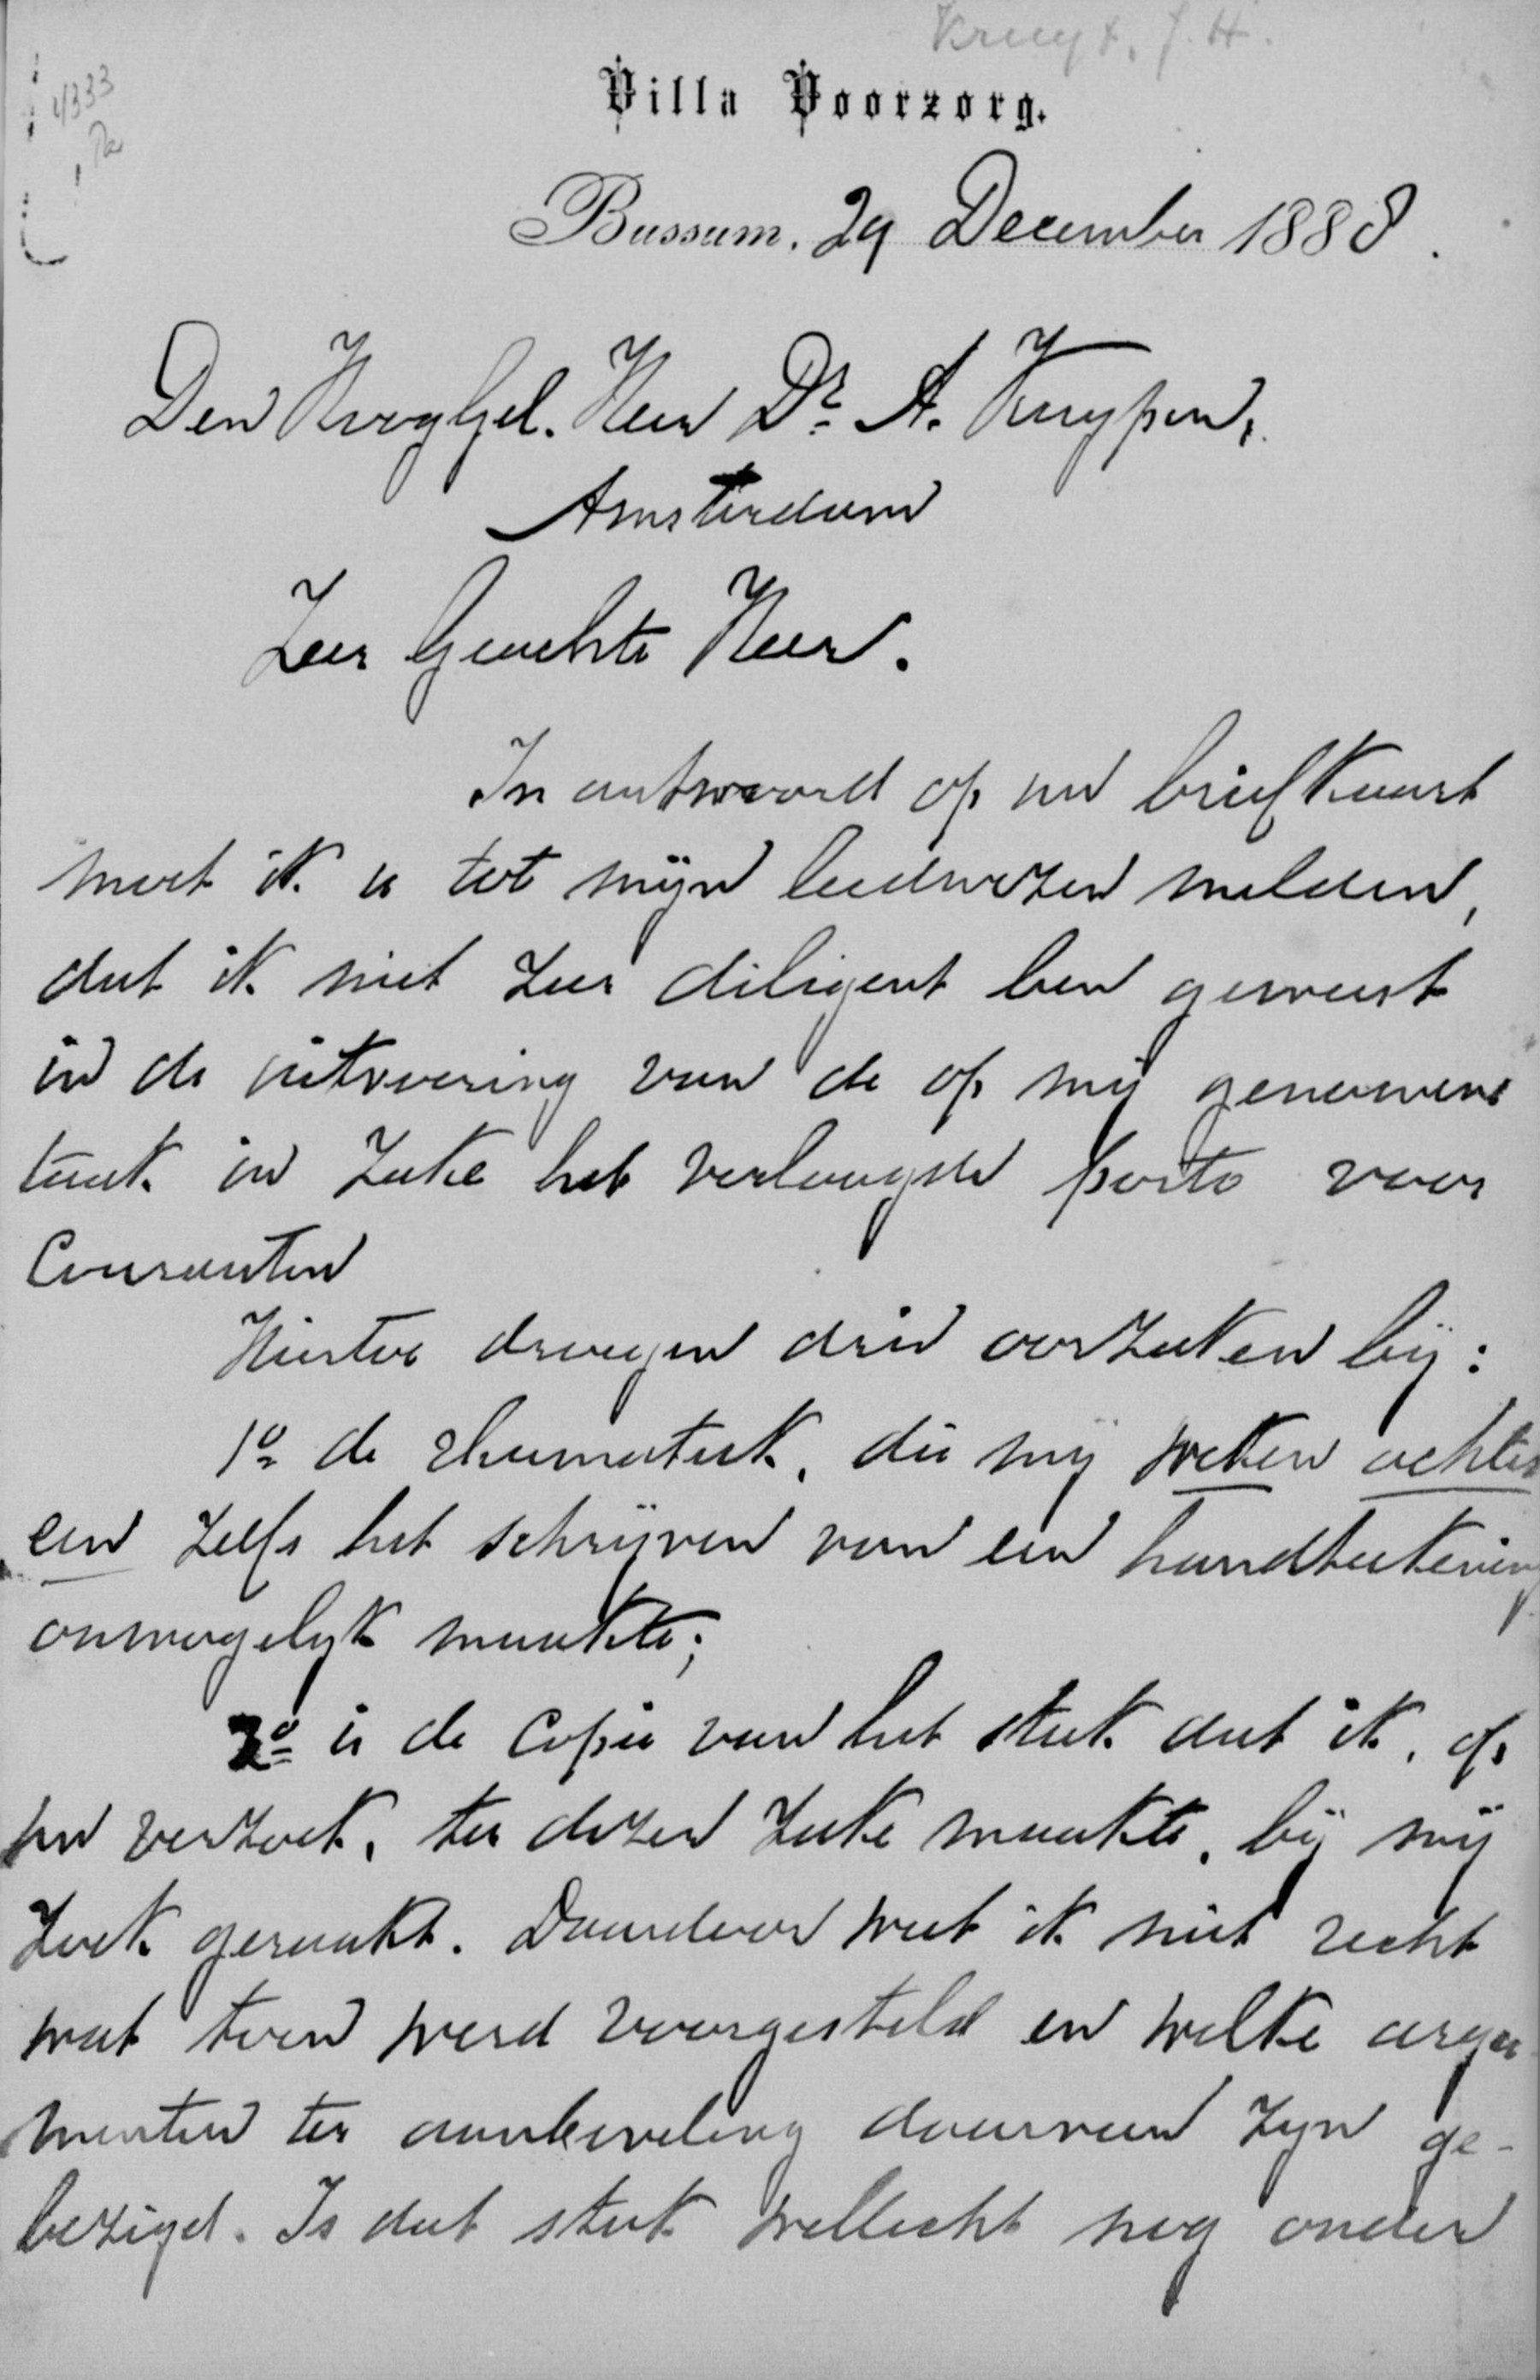 Kruyt, J. H.
4333
Villa Voorzorg.
Bussum, 29 December 1888.
Den HoogGel. Heer Dr A. Kuyper,
Amsterdam
Zeer Geachte Heer.
In antwoord op uw briefkaart
moet ik u tot mijn leedwezen melden,
dat ik niet zeer diligent ben geweest
in de uitvoering van de op mij genomen
taak in zake het verlaagde porto voor
Couranten
Hiertoe droegen drie oorzaken bij:
1o de rheumatiek, die mij weken achter
een zelfs het schrijven van een handteekening
onmogelijk maakte;
2o is de Copie van het stuk dat ik, op
uw verzoek, ter dezer zake maakte, bij mij
zoek geraakt. Daardoor weet ik niet recht
wat toen werd voorgesteld en welke argu-
menten ter aanbeveling daarvan zijn ge-
bezigd. Is dat stuk wellicht nog onder